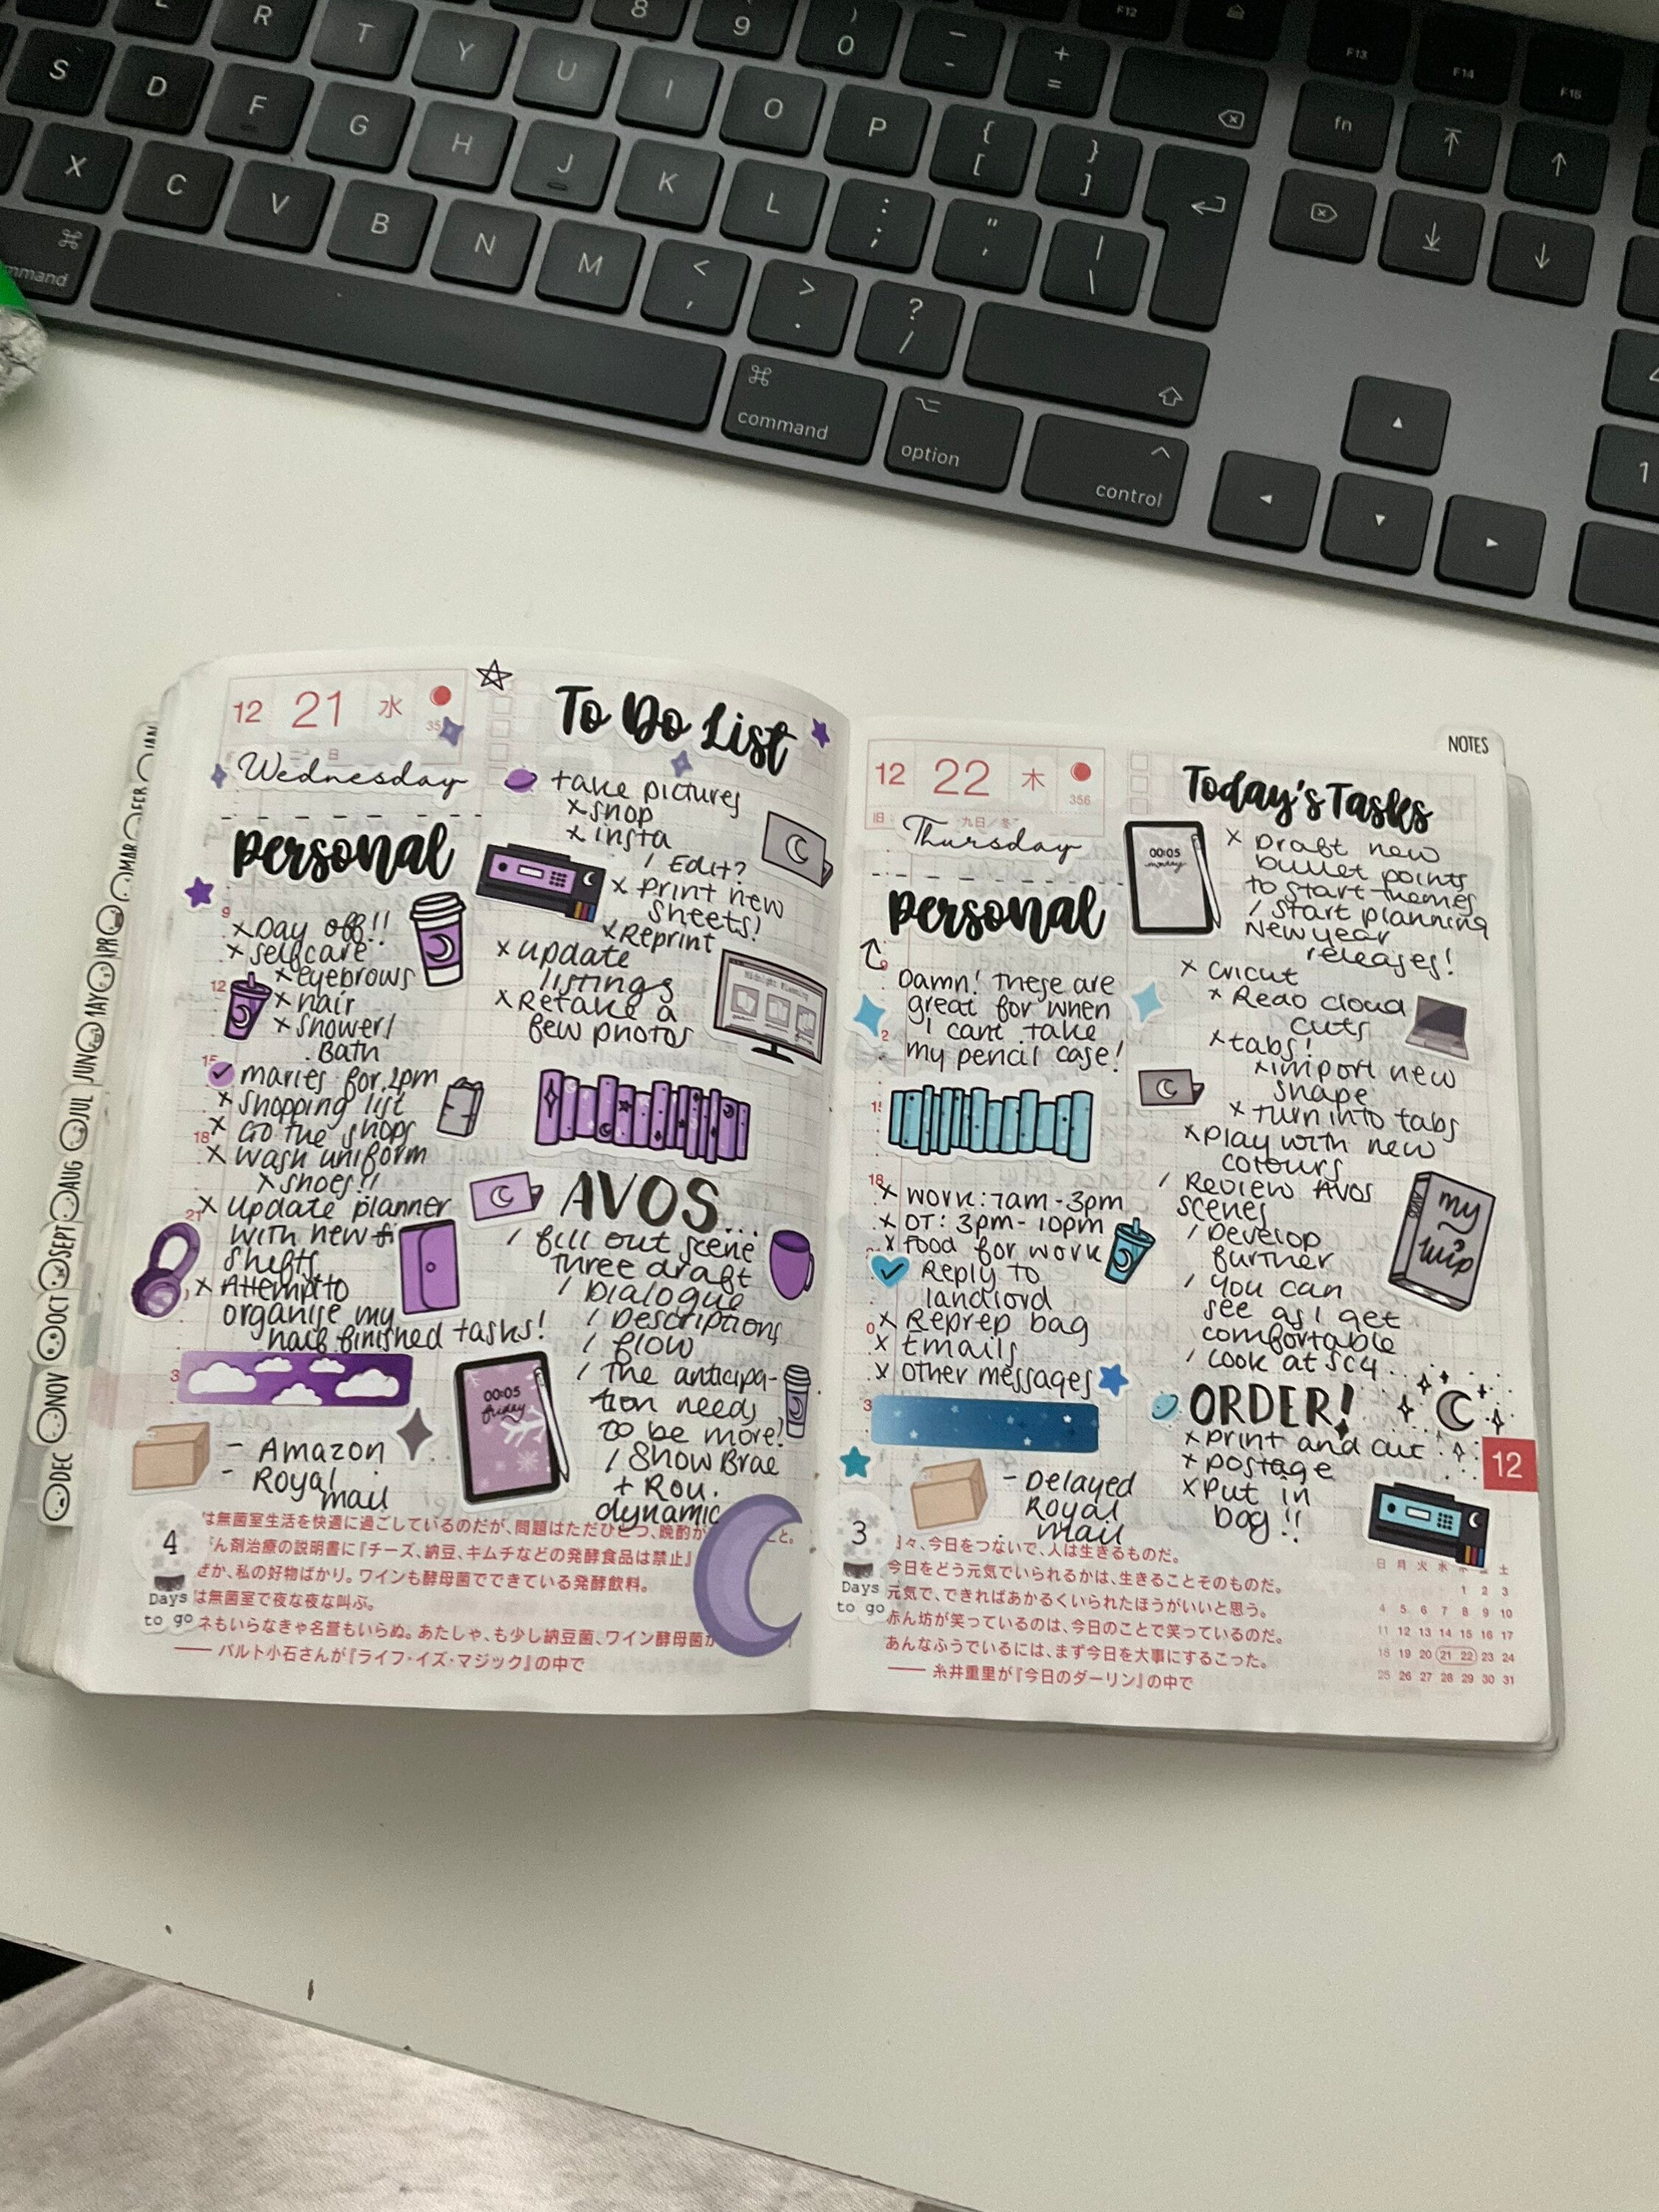 R
T
Y
U
I
8
9
)
0
_
-
+
=
F12
F13
F14
F15
S
D
F
G
H
J
K
O
P
{
[
}
]
fn
X
C
V
B
N
M
L
:
;
"
'
|
\
<
,
>
.
?
/
command
option
control
1
12 21 水
Wednesday
Personal
9
x Day off!!
x selfcare
x eyebrows
12
x hair
x shower/
Bath
15
maries for 2pm
x shopping list
18
x Go the shops
x wash uniform
x shoes!!
21
x update planner
with new
shifts
x Attempt to
organise my
half finished tasks!
3
- Amazon
- Royal
mail
4
Days
to go
To Do List
take pictures
x shop
x insta
/ Edit?
x print new
sheets!
x Reprint
x update
listings
x Retake a
few photos
AVOS...
/ fill out scene
three draft
/ Dialogue
/ Descriptions
/ flow
/ The anticipa-
tion needs
to be more!
/ Show Brae
+ Rou.
dynamic
00:05
friday
は無菌室生活を快適に過ごしているのだが、問題はただひとつ、晩酌が
と。
ん剤治療の説明書に『チーズ、納豆、キムチなどの発酵食品は禁止』
か、私の好物ばかり。ワインも酵母菌でできている発酵飲料。
は無菌室で夜な夜な叫ぶ。
ネもいらなきゃ名誉もいらぬ。あたしゃ、も少し納豆菌、ワイン酵母菌が
── バルト小石さんが『ライフ・イズ・マジック』の中で
JAN
FEB
MAR
APR
MAY
JUN
JUL
AUG
SEPT
OCT
NOV
DEC
NOTES
12 22 木
356
Thursday
Personal
Damn! These are
great for when
I cant take
my pencil case!
18
x work: 7am - 3pm
x OT: 3pm - 10pm
x food for work
Reply to
landlord
x Reprep bag
x Emails
x other messages
3
- Delayed
Royal
mail
3
Days
to go
Today's Tasks
00:05
x Draft new
bullet points
to start themes
/ start planning
New year
releases!
x Cricut
x Read cloud
cuts
x tabs!
x import new
shape
x turn into tabs
x play with new
colours
/ Review AVOS
scenes
/ Develop
further
/ you can
see as I get
comfortable
/ look at sc4..
AVOS
my
wip
ORDER!
x print and cut
x postage
x Put in
bag!!
12
々、今日をつないで、人は生きるものだ。
今日をどう元気でいられるかは、生きることそのものだ。
元気で、できればあかるくいられたほうがいいと思う。
赤ん坊が笑っているのは、今日のことで笑っているのだ。
あんなふうでいるには、まず今日を大事にするこった。
── 糸井重里が『今日のダーリン』の中で
日 月 火 水 木 土
1 2 3
4 5 6 7 8 9 10
11 12 13 14 15 16 17
18 19 20 21 22 23 24
25 26 27 28 29 30 31